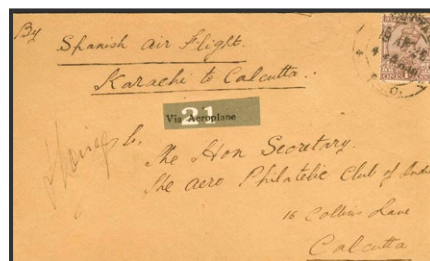 By
Spanish Air Flight.
Karachi to Calcutta.
21
Via Aeroplane
The Hon Secretary.
The Aero Philatelic Club of
16 Collins Lane
Calcutta